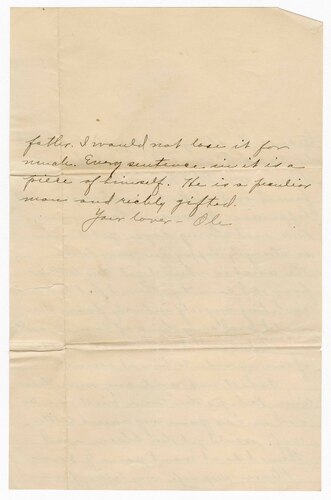 father. I would not lose it for
much. Every sentence in it is a
piece of himself. He is a peculiar
man and richly gifted.
Your lover - Ole